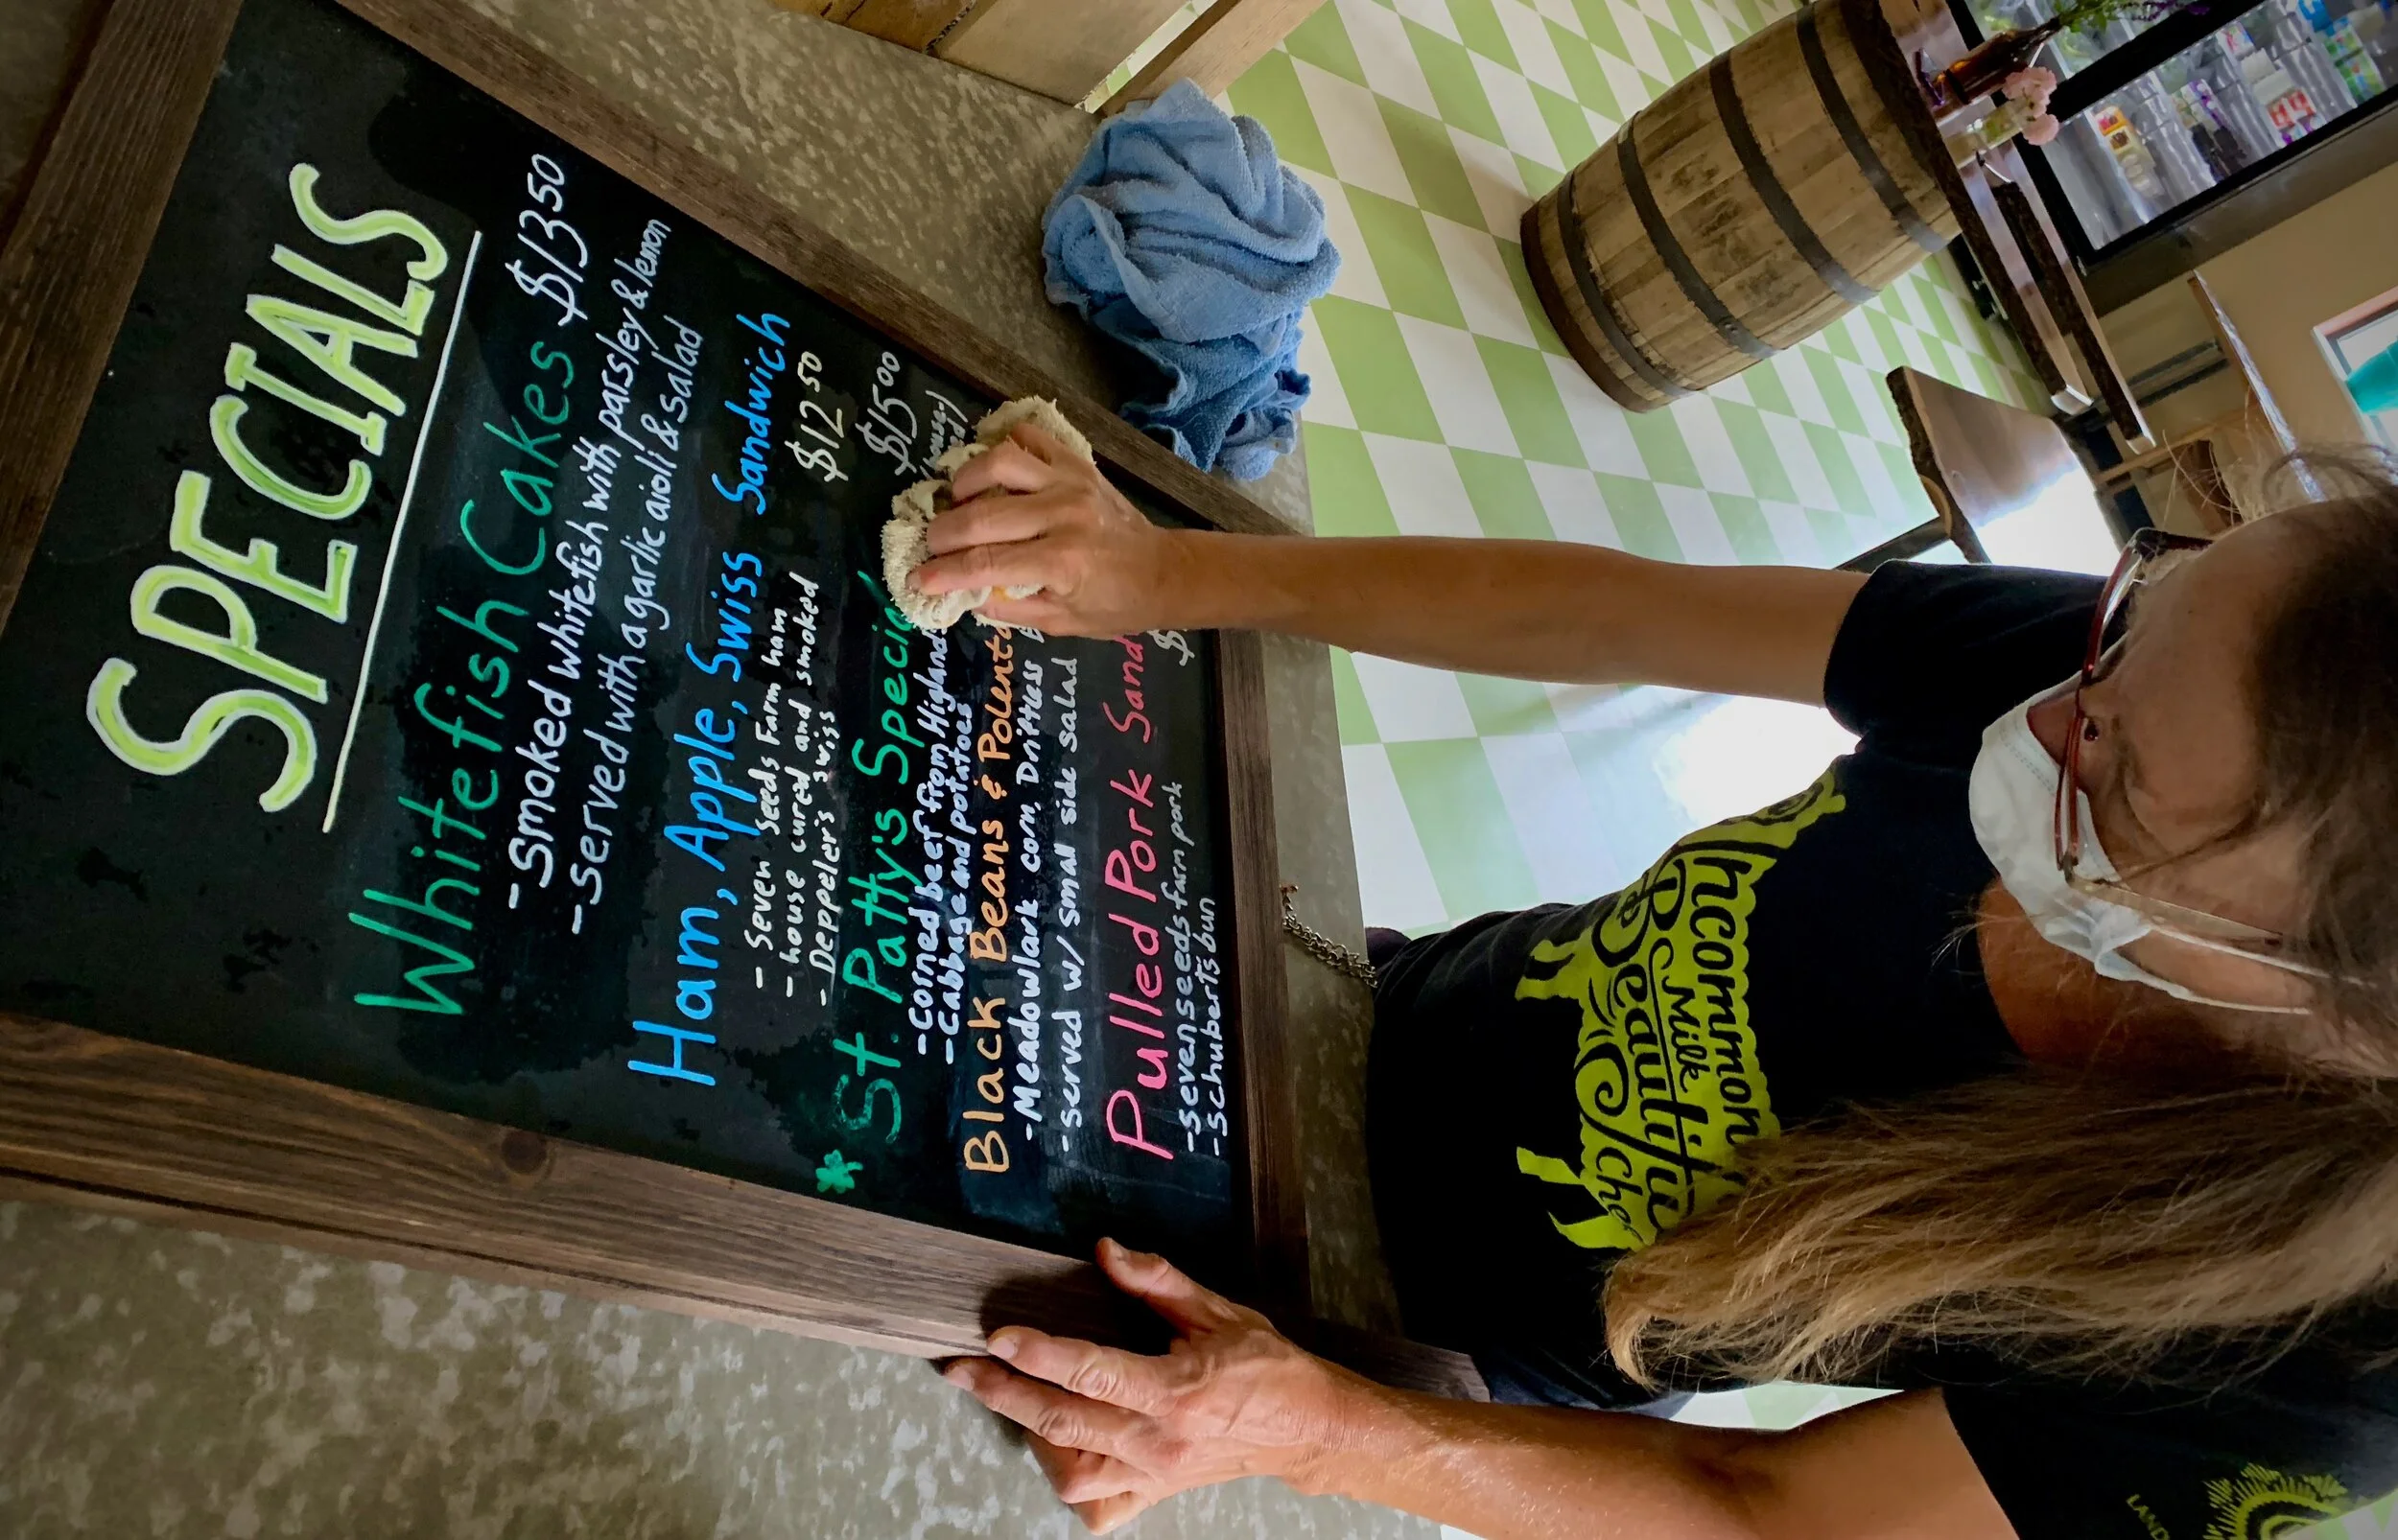 SPECIALS
Whitefish Cakes $13.50
- Smoked whitefish with parsley & lemon
- served with a garlic aioli & salad
Ham, Apple, Swiss Sandwich
- Seven Seeds Farm ham $12.50
- house cured and smoked
- Deppeler's swiss
St. Patty's $15.00
- Corned beef from Highland
- Cabbage and potatoes
Black Beans & Polenta
- Meadowlark corn, Driftless
- served w/ small side salad
Pulled Pork
- sevenseeds farm pork $
- Schubert's bun
Uncommon
Milk
Beautiful